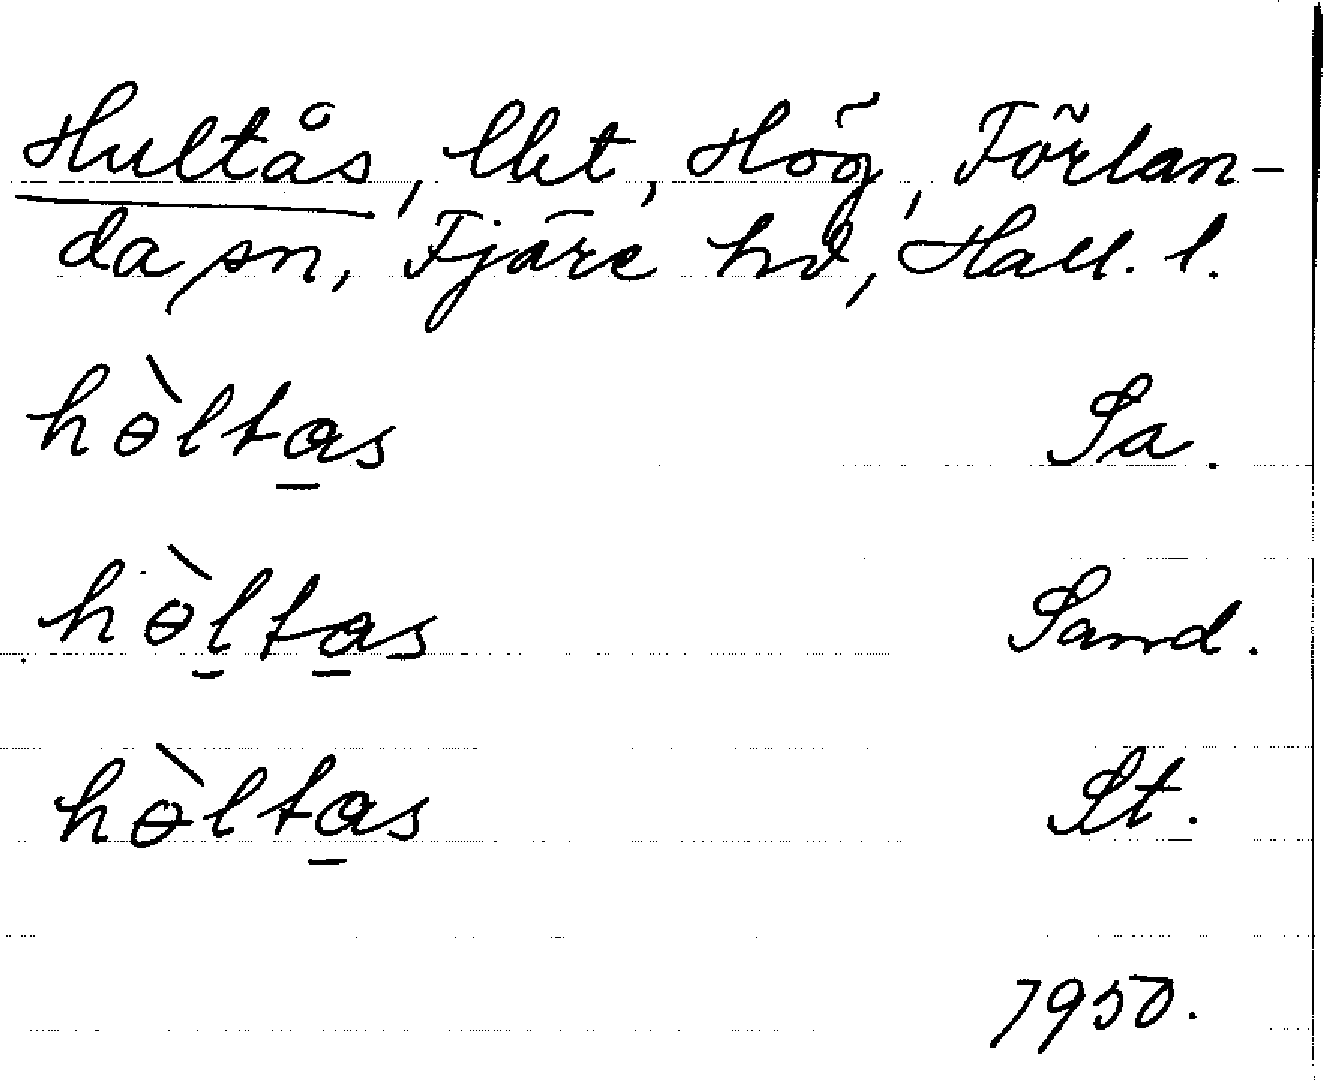 Hultås, lht, Hög, Förlan-
da sn, Fjäre hd, Hall. l.
hɵ̀ltas Sa.
hɵ̀ltas Sand.
hɵ̀ltas St.
1950.